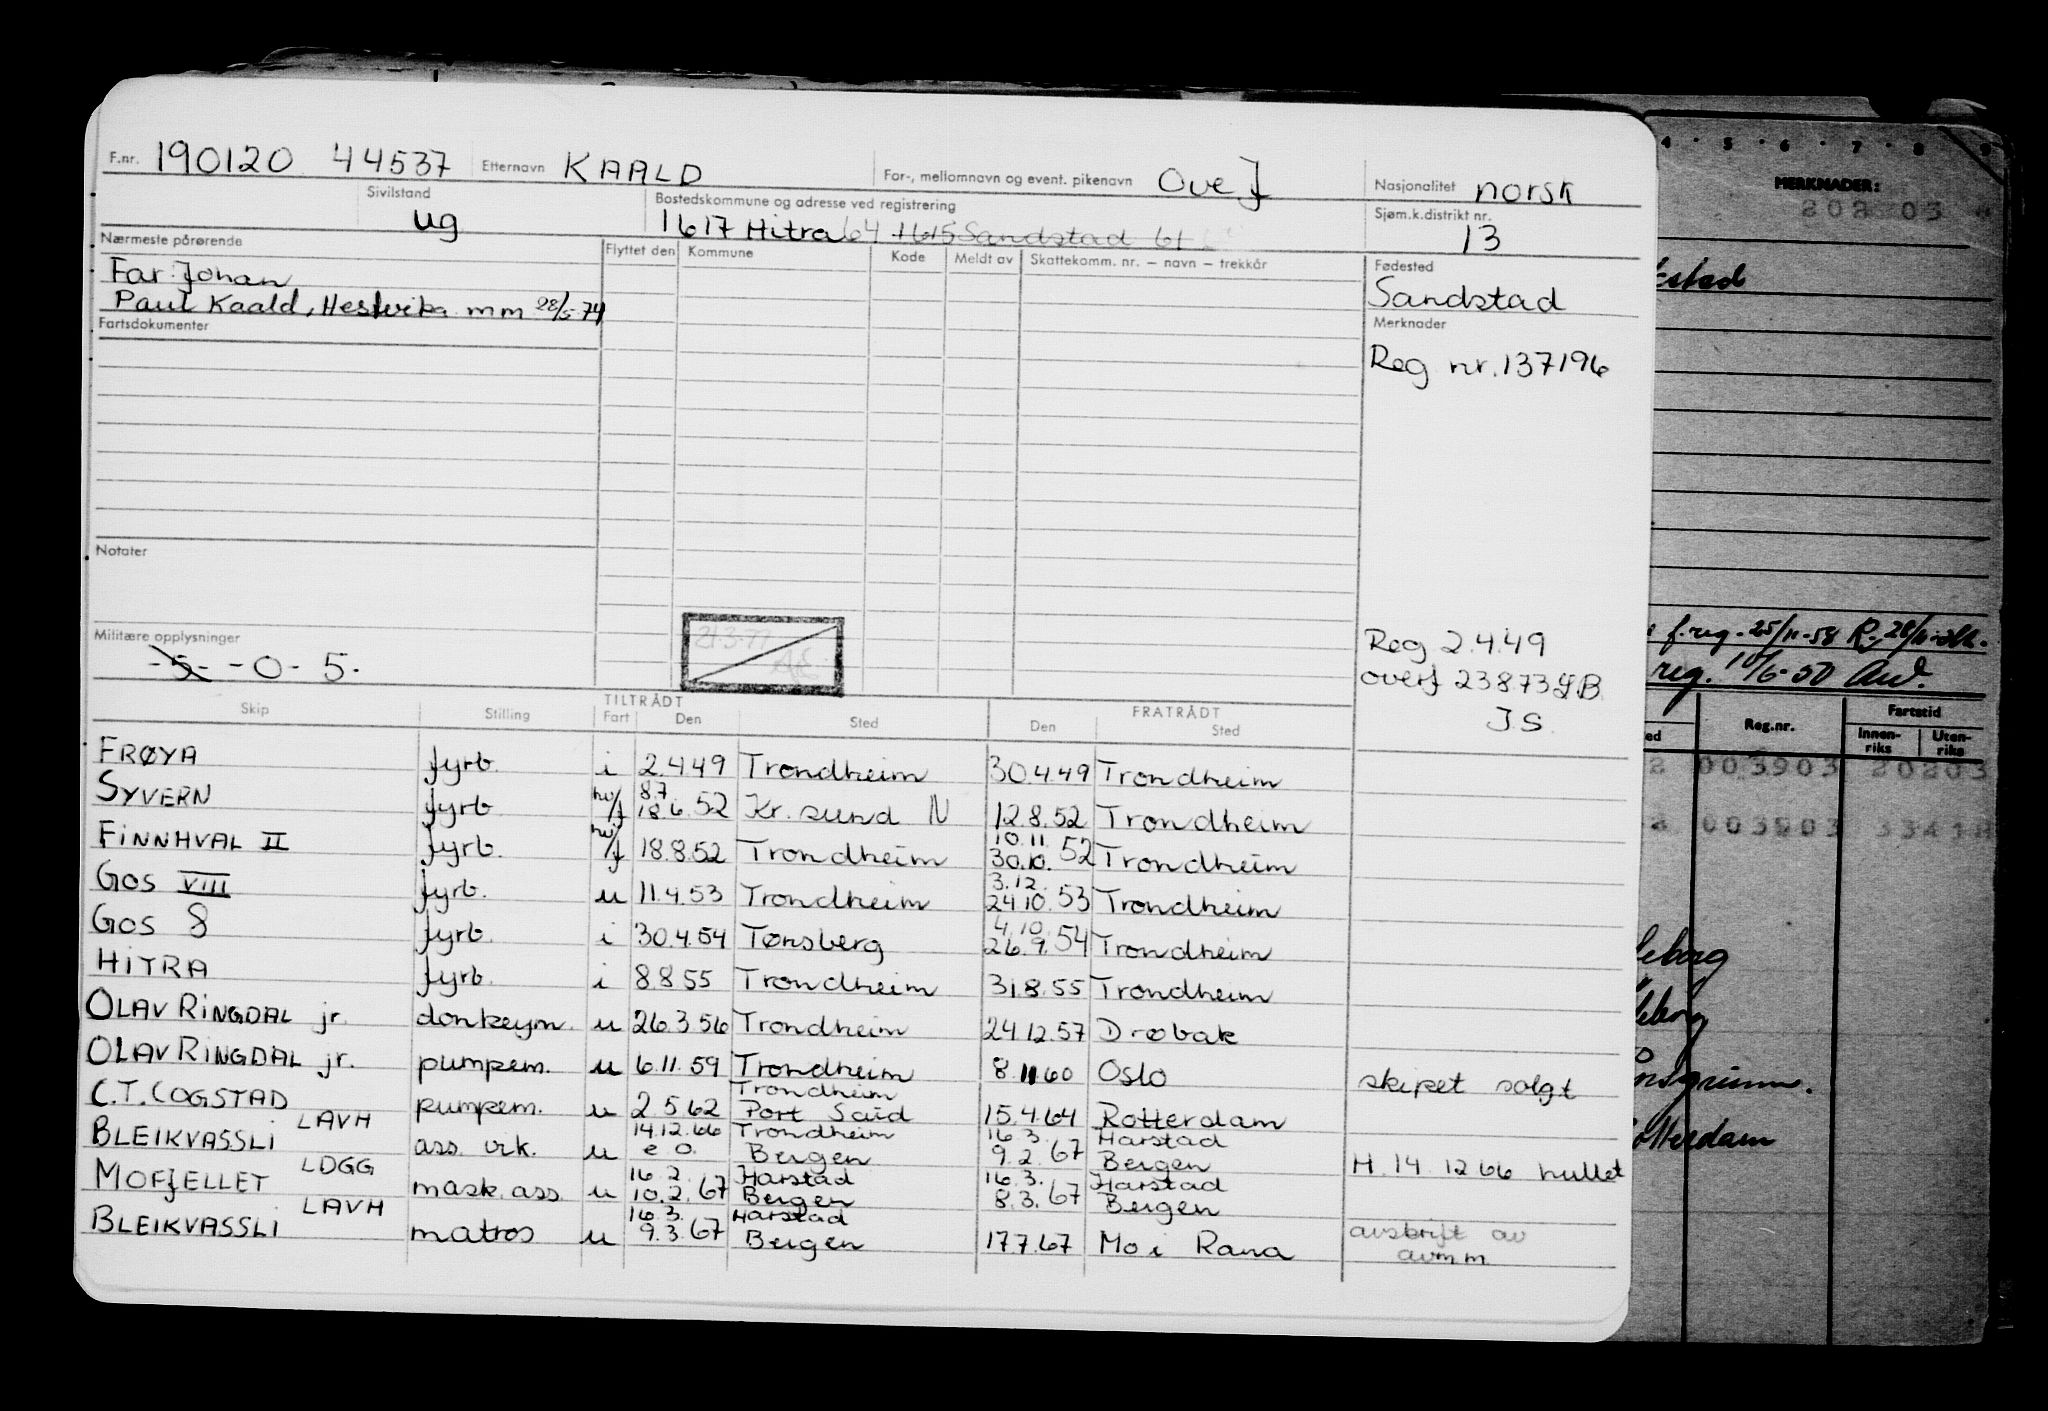 F.nr. 190120 44537 Etternavn KAALD For-, mellomnavn og event. pikenavn Ove J Nasjonalitet norsk
Sivilstand ug Bostedskommune og adresse ved registrering Sjøm.k.distrikt nr.
1617 Hitra 64 1615 Sandstad 61 13
Nærmeste pårørende Flyttet den Kommune Kode Meldt av Skattekomm. nr. – navn – trekkår Fødested
Far: Johan Sandstad
Paul Kaald, Hestvika mm 28/5-74
Fartsdokumenter Merknader
Reg nr. 137196
Notater
Militære opplysninger
-5- -0- 5-
21.3.77
Reg 2.4.49
overf 23873
J.S.
TILTRÅDT FRATRÅDT
Skip Stilling Fart Den Sted Den Sted
FRØYA fyrb. i 2.4.49 Trondheim 30.4.49 Trondheim
SYVERN fyrb hv/f 8.7. 18.6.52 Kr. sund N 12.8.52 Trondheim
FINNHVAL II fyrb. hv/f 18.8.52 Trondheim 10.11. 30.10.52 Trondheim
GOS VIII fyrb. u 11.4.53 Trondheim 3.12. 24.10.53 Trondheim
GOS 8 fyrb. i 30.4.54 Tønsberg 4.10. 26.9.54 Trondheim
HITRA fyrb. i 8.8.55 Trondheim 31.8.55 Trondheim
OLAV RINGDAL jr. donkeym. u 26.3.56 Trondheim 24.12.57 Drøbak
OLAV RINGDAL jr. pumpem. u 6.11.59 Trondheim 8.11.60 Oslo skipet solgt
C.T. COGSTAD pumpem. u 2.5.62 Trondheim Port Said 15.4.64 Rotterdam
BLEIKVASSLI LAVH ass. vik. u 14.12.66 e.o. Trondheim Bergen 16.3. 9.2.67 Harstad Bergen H. 14.12.66 nullet
MOFJELLET LDGG mask. ass. u 16.2. 10.2.67 Harstad Bergen 16.3. 8.3.67 Harstad Bergen
BLEIKVASSLI LAVH matros u 16.3. 9.3.67 Harstad Bergen 17.7.67 Mo i Rana avskrift av
avm m.
4 5 6 7 8 9
MERKNADER:
f.reg. 25/11-58
reg. 10/6-50
Reg.nr. Fartstid
Innen- riks Uten- riks
003903 20203
003903